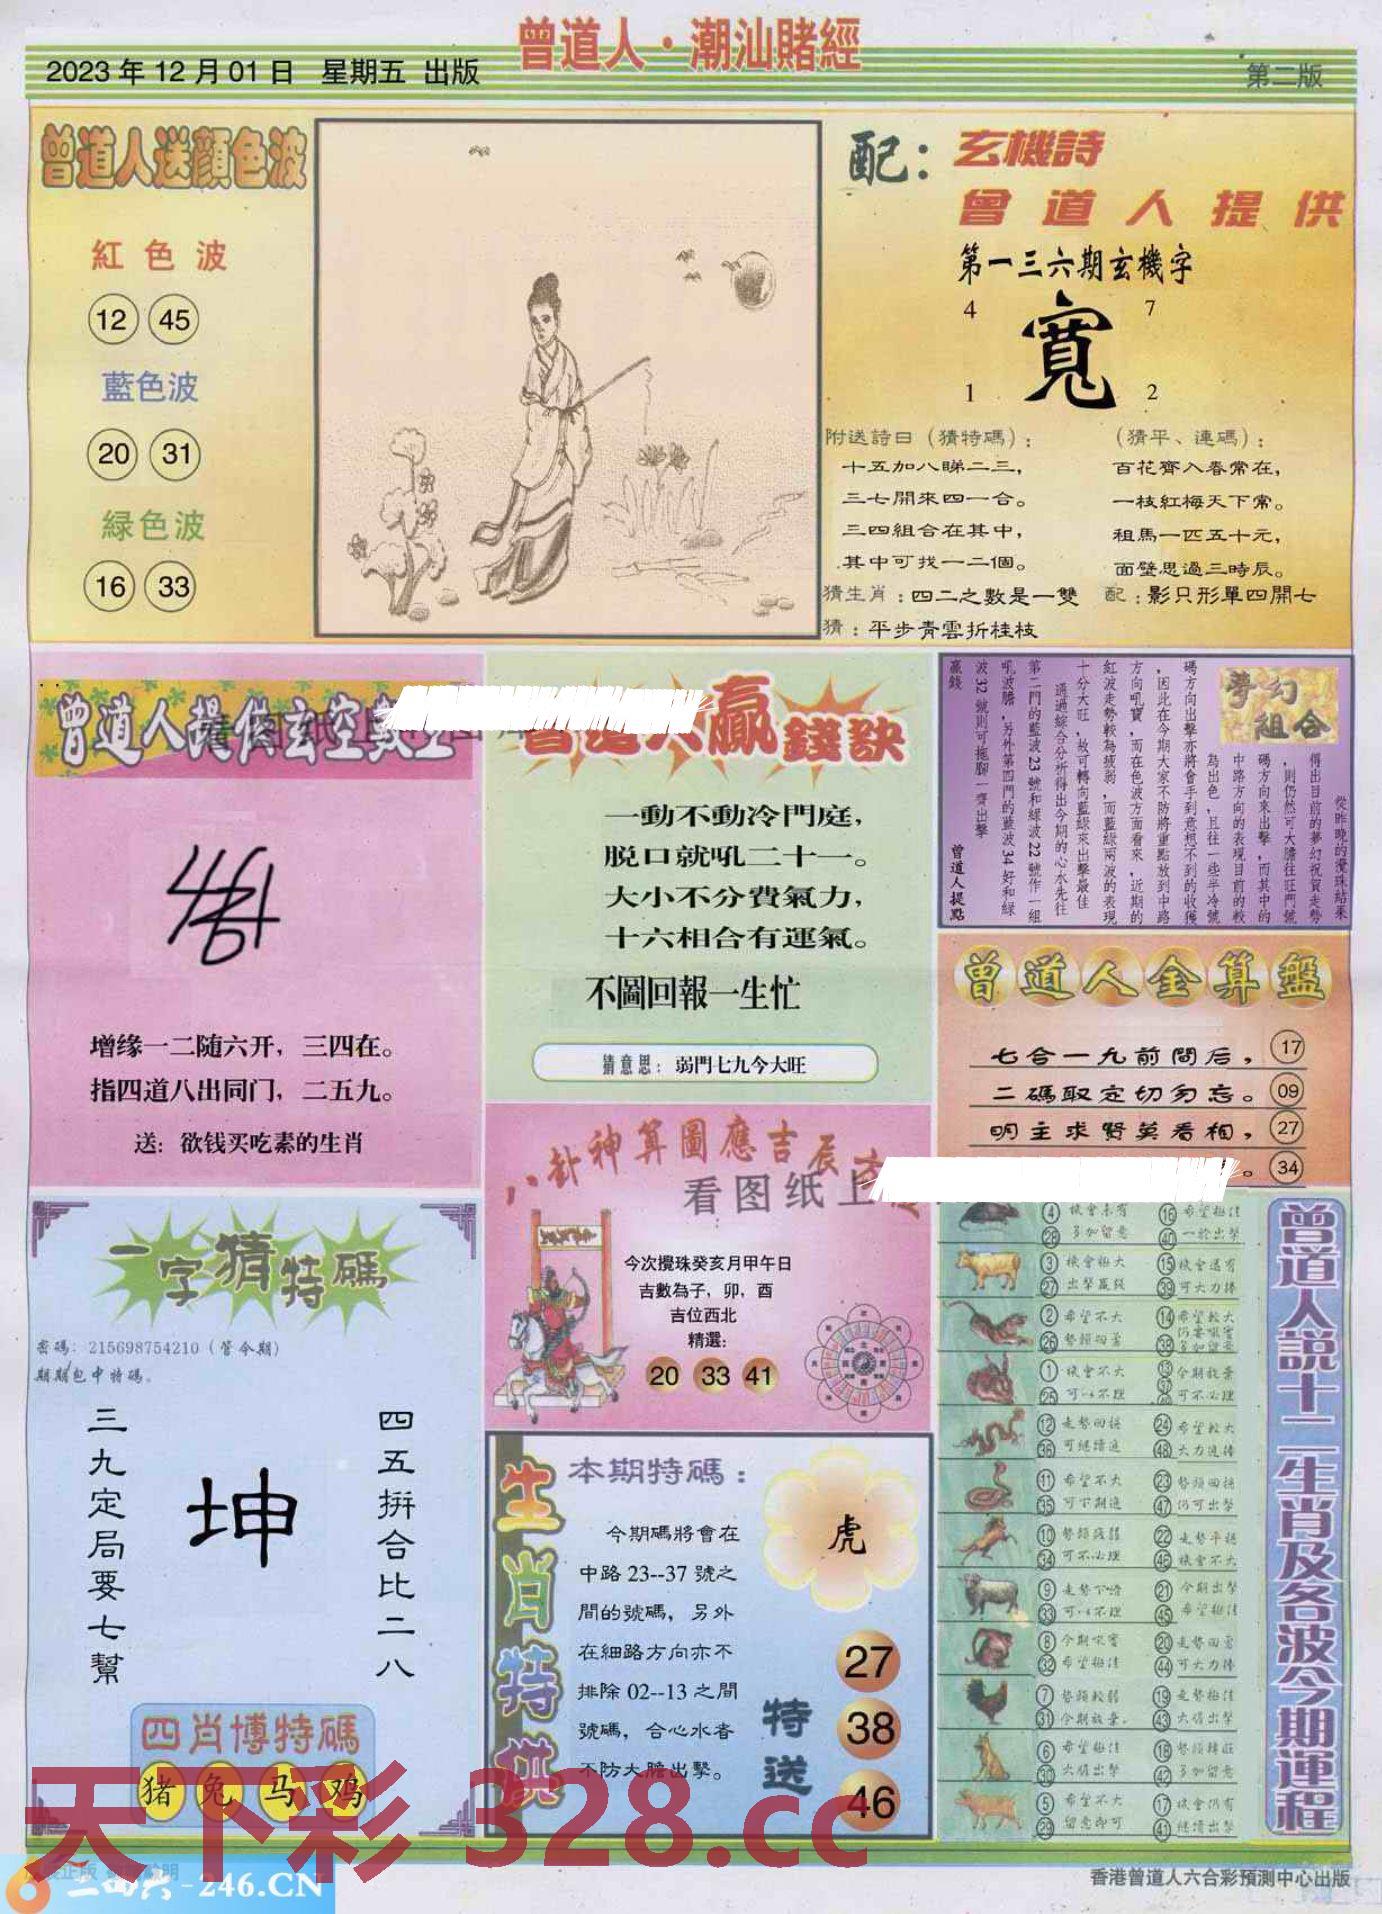 曾道人·潮汕賭經
2023 年 12 月 01 日 星期五 出版
第二版
曾道人送顔色波
紅色波
12 45
藍色波
20 31
緑色波
16 33
配：玄機詩
曾道人提供
第一三六期玄機字
4 7
寬
1 2
附送詩曰（猜特碼）：
十五加八睇二三，
三七開來四一合。
三四組合在其中，
其中可找一二個。
（猜平、連碼）：
百花齊入春常在，
一枝紅梅天下常。
租馬一匹五十元，
面壁思過三時辰。
猜生肖：四二之數是一雙
配：影只形單四開七
猜：平步青雲折桂枝
曾道人提供玄空數
增缘一二随六开，三四在。
指四道八出同门，二五九。
送：欲钱买吃素的生肖
贏錢訣
一動不動冷門庭，
脱口就吼二十一。
大小不分費氣力，
十六相合有運氣。
不圖回報一生忙
猜意思：弱門七九今大旺
夢幻組合
從昨晚的攪珠結果
得出目前的夢幻祝賀走勢
，則仍然可大膽往旺門號
碼方向來出擊，而其中的
中路方向的表現目前的較
為出色，且往一些半冷號
碼方向出擊亦將會手到意想不到的收獲
，因此在今期大家不防將重點放到中路
方向吼寶，而在色波方面看來，近期的
紅波走勢較為疲弱，而藍緑兩波的表現
十分大旺，故可轉向藍緑來出擊最佳
通過綜合分析得出今期的心水先往
第二門的藍波23號和緑波22號作一組
吼波膽，另外第四門的藍波34好和緑
波32號則可拖脚一齊出擊
贏錢
曾道人提點
曾道人金算盤
七合一九前問后， 17
二碼取定切勿忘。 09
明主求賢英看相， 27
。 34
八卦神算圖應吉辰
看图纸上
今次攪珠癸亥月甲午日
吉數為子，卯，酉
吉位西北
精選：
20 33 41
一字猜特碼
密碼：215698754210（管今期）
期期包中特碼。
四五拼合比二八
坤
三九定局要七幫
四肖博特碼
猪 兔 马 鸡
生肖特供
本期特碼：
今期碼將會在
中路 23--37 號之
間的號碼，另外
在細路方向亦不
排除 02--13 之間
號碼，合心水者
不防大膽出擊。
虎
特送
27
38
46
曾道人説十二生肖及各波今期運程
4 機會未有 16 希望極佳
28 多加留意 40 一於出擊
3 機會極大 15 機會還有
27 出擊贏錢 39 可大力捧
2 希望不大 14 希望較大
26 勢頭回落 38
1 機會不大 今期放棄
25 可以不理 可不必理
12 走勢回穩 24 希望較大
36 可繼續追 48 大力追捧
11 希望不大 23 勢頭回穩
35 可下期追 47 仍可出擊
10 勢頭疲弱 22 走勢平穩
34 可不必理 46 機會不大
9 走勢下滑 21 今期出擊
33 可以不理 45 希望極佳
8 今期吼寶 20 走勢回勇
32 希望極佳 44 可大力捧
7 勢頭較弱 19 走勢極佳
31 今期放棄。 43 大膽出擊
6 希望極佳 18 勢頭轉旺
30 大膽出擊 42 多加留意
5 希望不大 17 機會仍有
29 留意即可 41 繼續出擊
天下彩 328.cc
二四六-246.CN
香港曾道人六合彩預測中心出版